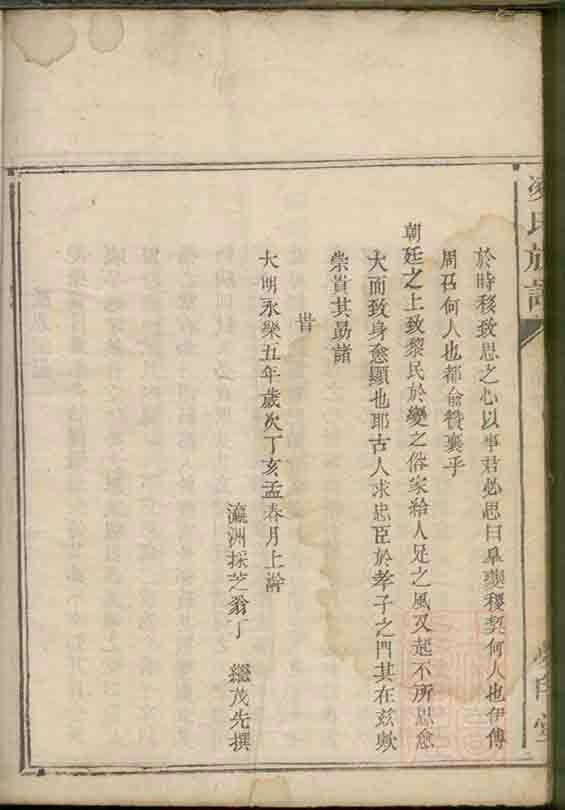 於時移致思之心以事君必思曰皐夔稷契何人也伊傅
周召何人也都俞贊襄乎
朝廷之上致黎民於變之俗家給人足之風又起不所思愈
大而致身愈顯也耶古人求忠臣於孝子之門其在玆歟
崇貴其勗諸
旹
大明永樂五年歲次丁亥孟春月上澣
瀛洲採芝翁丁 繼茂先撰